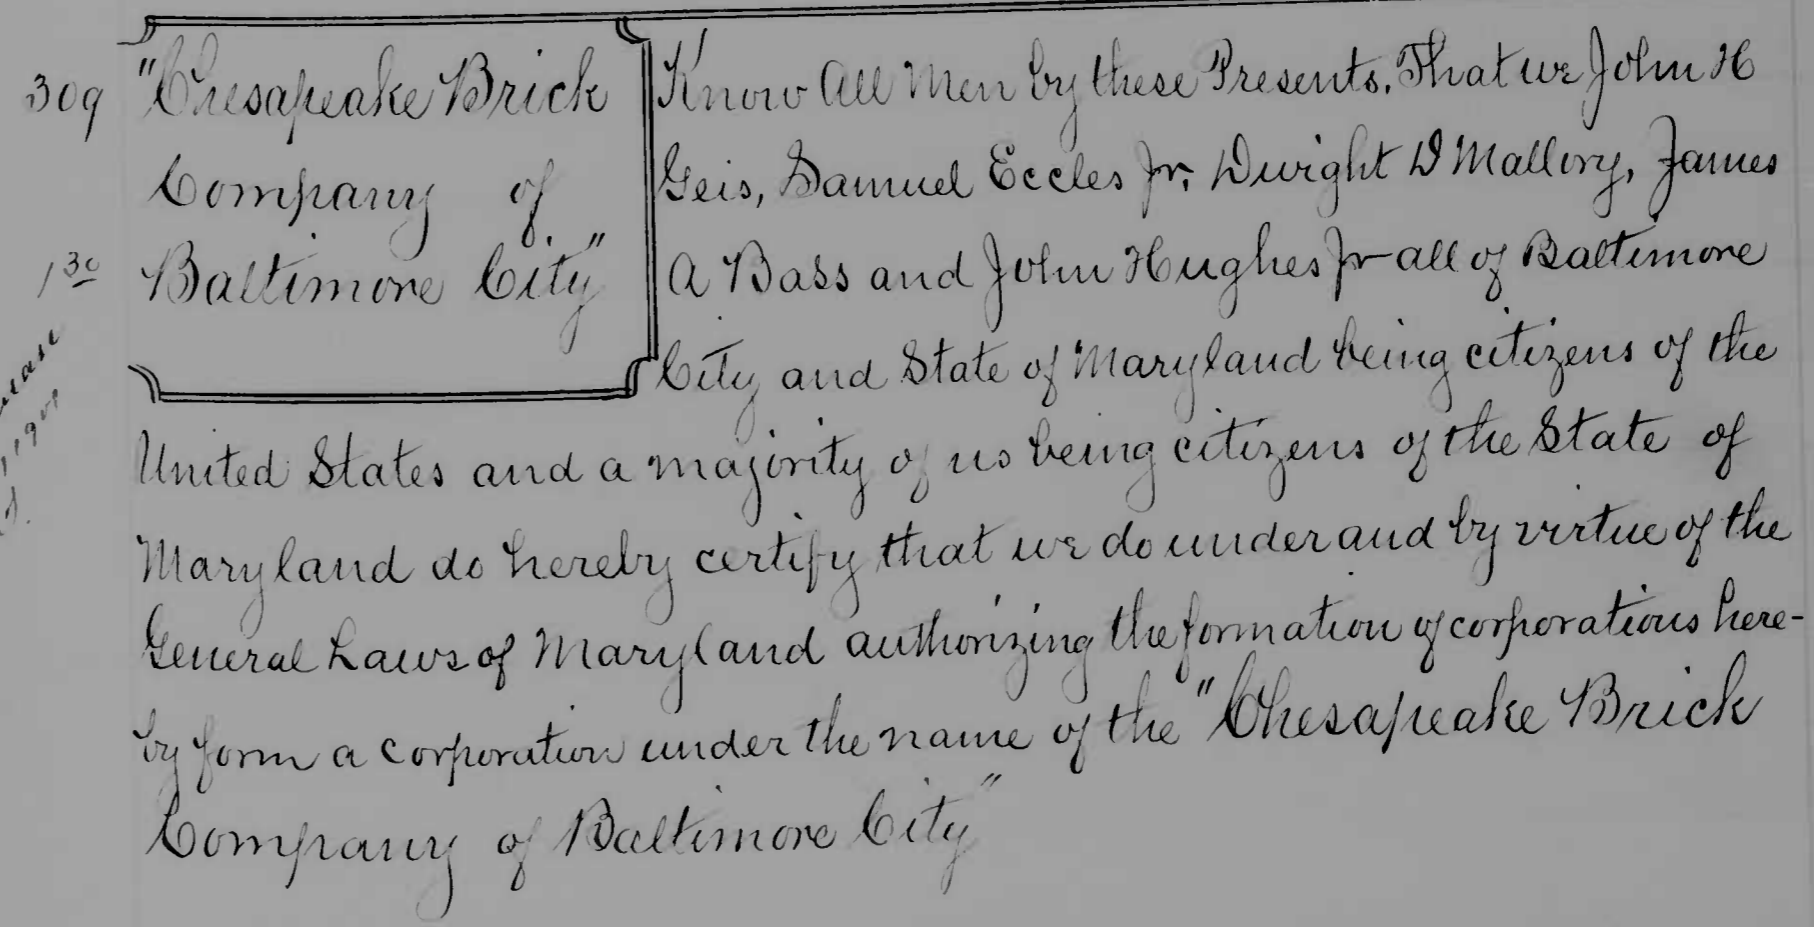 309
1 30
"Chesapeake Brick
Company of
Baltimore City"
Know All Men by these Presents. That we John H
Geis, Samuel Eccles Jr. Dwight D Mallory, James
A Bass and John Hughes Jr all of Baltimore
City and State of Maryland being citizens of the
United States and a majority of us being citizens of the State of
Maryland do hereby certify that we do under and by virtue of the
General Laws of Maryland authorizing the formation of corporations here-
by form a corporation under the name of the "Chesapeake Brick
Company of Baltimore City"